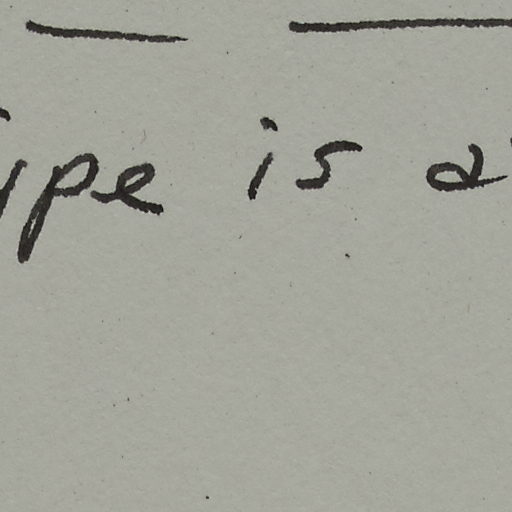 ype is a